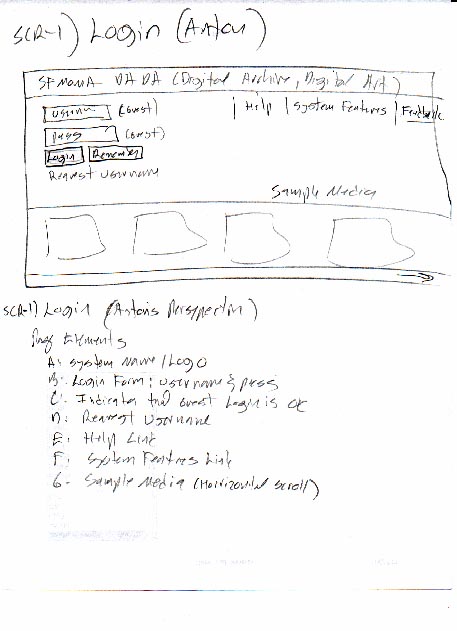 SCR-1) Login (Anton)
SFMOMA DADA (Digital Archive, Digital Art)
usernm (Guest) | Help | System Features | Feedback
pass (Guest)
Login Remember
Request Username
Sample Media
SCR-1) Login (Anton's Perspective)
Page Elements
A: System Name/Logo
B: Login Form; username & pass
C: Indicator that guest login is ok
D: Request Username
E: Help Link
F: System Features Link
G- Sample Media (Horizontal scroll)